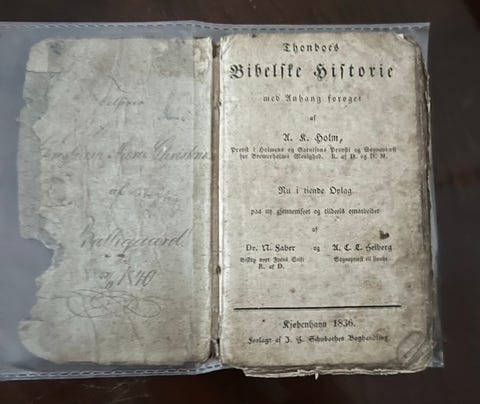 tilhører
af
Balltzgaard
1840
Thonboes
Bibelske Historie
med Anhang forøget
af
A. K. Holm,
Provst i Holmens og Garnisons Provsti og Sognepræst
for Bremerholms Menighed. R. af D. og D. M.
Nu i tiende Oplag
paa ny gjennemseet og tildeels omarbeidet
af
Dr. N. Faber og A. C. L. Heiberg
Biskop over Fyens Stift Sognepræst til
R. af D.
Kjøbenhavn 1836.
Forlagt af J. H. Schubothes Boghandling